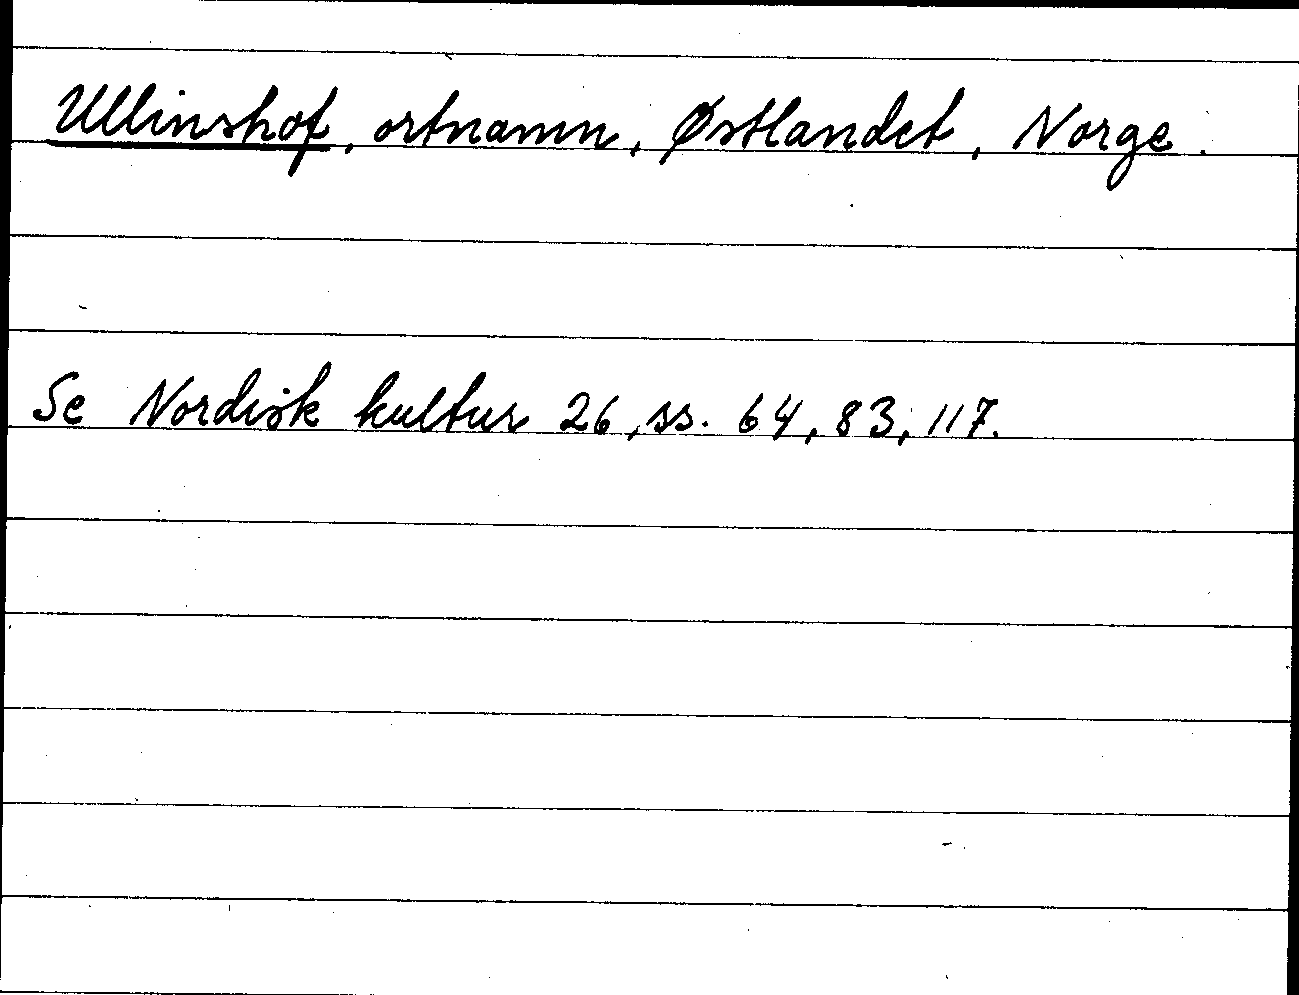 Ullinshof, ortnamn, Østlandet, Norge.
Se Nordisk kultur 26, ss. 64, 83, 117.